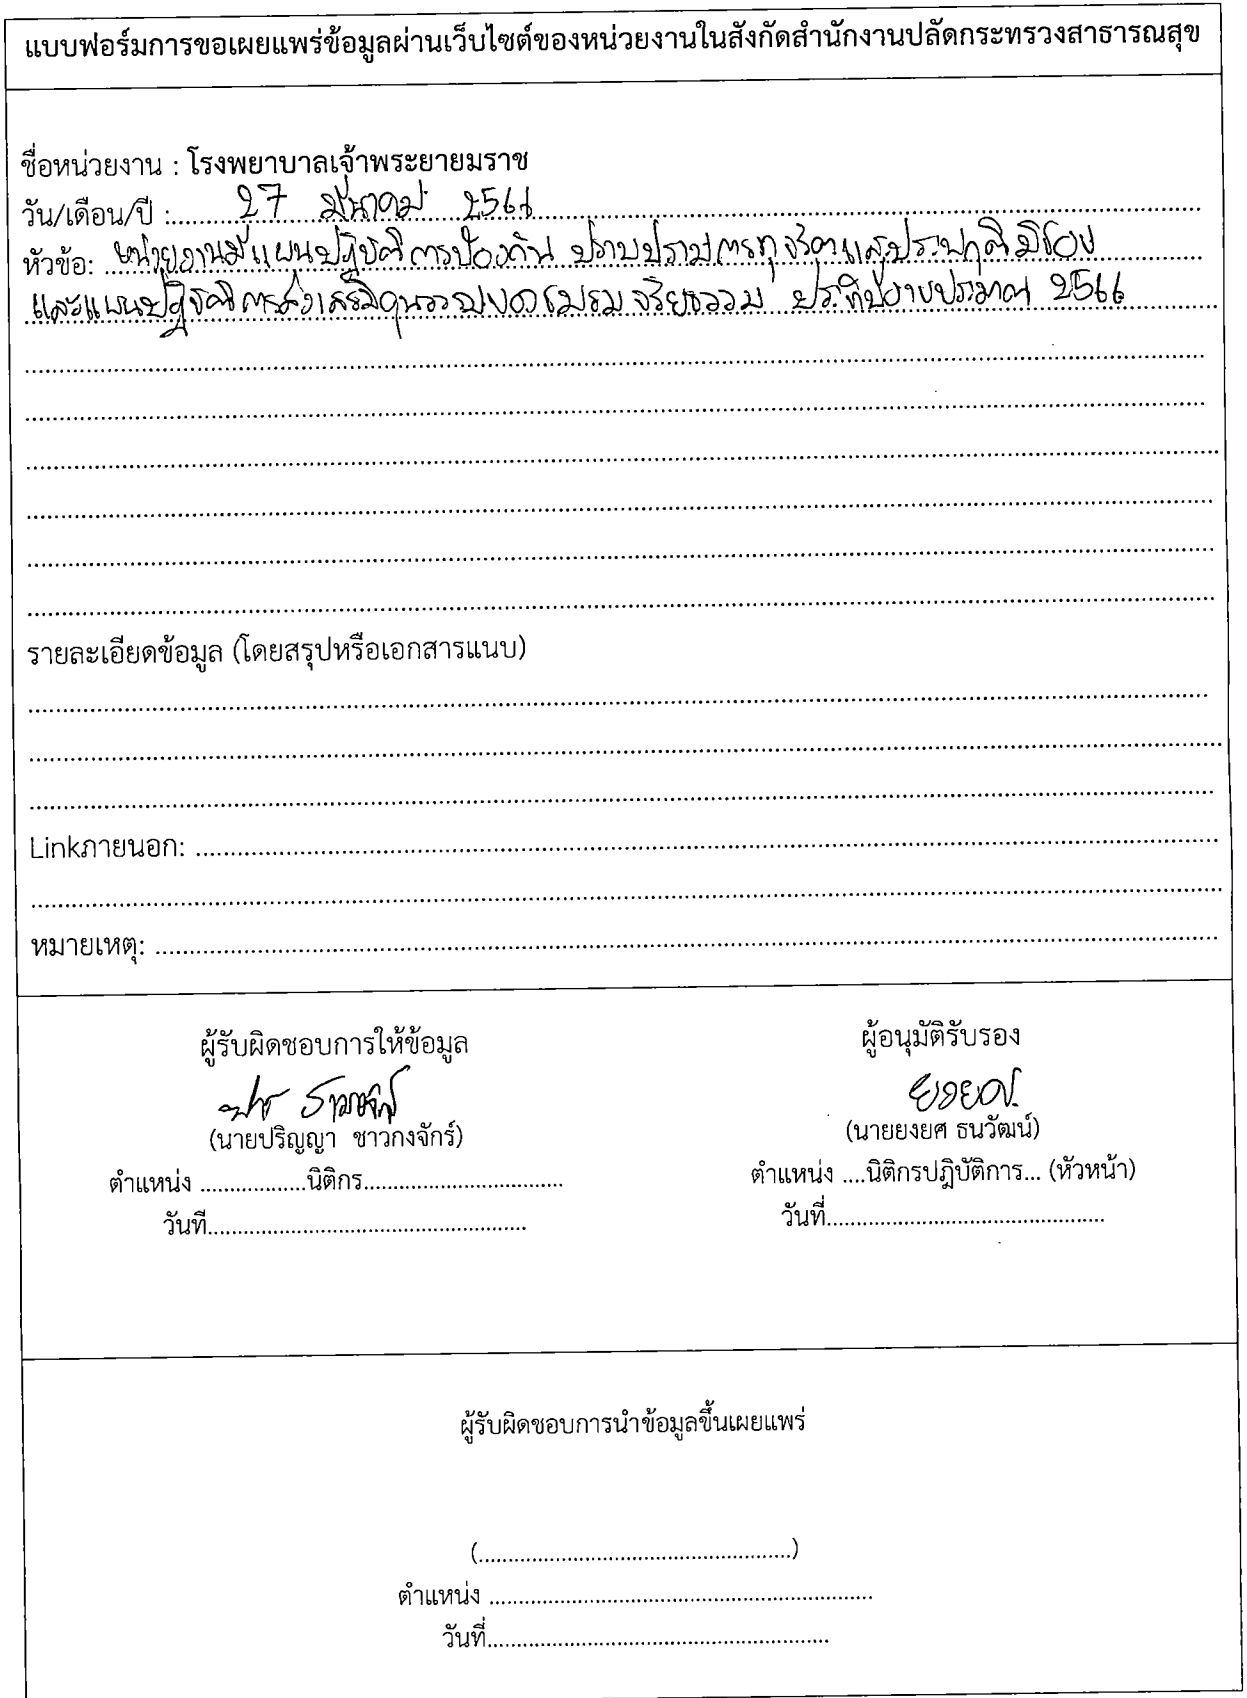 แบบฟอร์มการขอเผยแพร่ข้อมูลผ่านเว็บไซต์ของหน่วยงานในสังกัดสำนักงานปลัดกระทรวงสาธารณสุข
ชื่อหน่วยงาน : โรงพยาบาลเจ้าพระยายมราช
วัน/เดือน/ปี :........ 27 มีนาคม 2566
หัวข้อ: หน่วยงานมีแผนปฏิบัติการป้องกัน ปราบปรามการทุจริตและประพฤติมิชอบ
และแผนปฏิบัติการส่งเสริมคุณธรรมของชมรมจริยธรรม ประจำปีงบประมาณ 2566
รายละเอียดข้อมูล (โดยสรุปหรือเอกสารแนบ)
Linkภายนอก: ........................
หมายเหตุ: ........................
ผู้รับผิดชอบการให้ข้อมูล
(นายปริญญา ชาวกงจักร์)
ตำแหน่ง ..................นิติกร..................................
วันที่......................................................
ผู้อนุมัติรับรอง
ยงยศ
(นายยงยศ ธนวัฒน์)
ตำแหน่ง ....นิติกรปฏิบัติการ... (หัวหน้า)
วันที่...............................................
ผู้รับผิดชอบการนำข้อมูลขึ้นเผยแพร่
(.....................................................)
ตำแหน่ง .................................................................
วันที่..........................................................